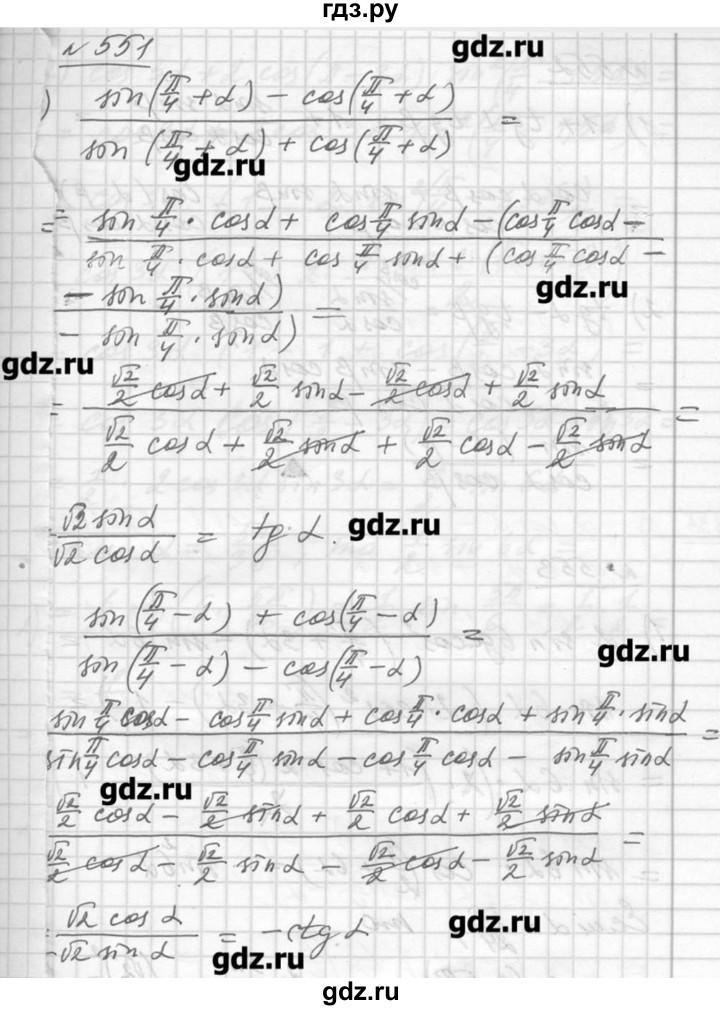 гдз.ру
№551
gdz.ru
) sin(π/4 + α) − cos(π/4 + α) / sin(π/4 + α) + cos(π/4 + α) =
gdz.ru
= sin π/4 · cos α + cos π/4 sin α − (cos π/4 cos α − / sin π/4 · cos α + cos π/4 sin α + (cos π/4 cos α −
gdz.ru
− sin π/4 · sin α) / − sin π/4 · sin α) =
gdz.ru
= √2/2 cos α + √2/2 sin α − √2/2 cos α + √2/2 sin α / √2/2 cos α + √2/2 sin α + √2/2 cos α − √2/2 sin α =
√2 sin α / √2 cos α = tg α.
gdz.ru
sin(π/4 − α) + cos(π/4 − α) / sin(π/4 − α) − cos(π/4 − α) =
gdz.ru
sin π/4 cos α − cos π/4 sin α + cos π/4 · cos α + sin π/4 · sin α / sin π/4 cos α − cos π/4 sin α − cos π/4 cos α − sin π/4 sin α =
gdz.ru
√2/2 cos α − √2/2 sin α + √2/2 cos α + √2/2 sin α / √2/2 cos α − √2/2 sin α − √2/2 cos α − √2/2 sin α =
√2 cos α / −√2 sin α = −ctg α
gdz.ru
gdz.ru
gdz.ru